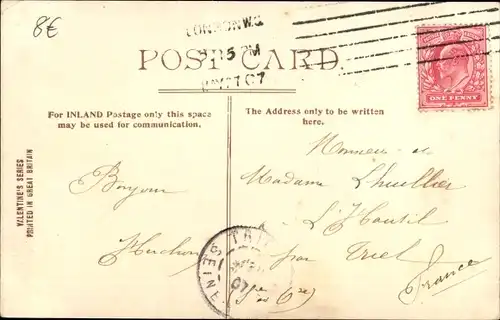 8€
LONDON W.C.
5 PM
MAY 17 07
POST CARD.
ONE PENNY
For INLAND Postage only this space
may be used for communication.
The Address only to be written
here.
VALENTINE'S SERIES
PRINTED IN GREAT BRITAIN
Bonjour
Monsieur et
Madame Lhuillier
L'Hautil
par Triel
France
SEINE
07